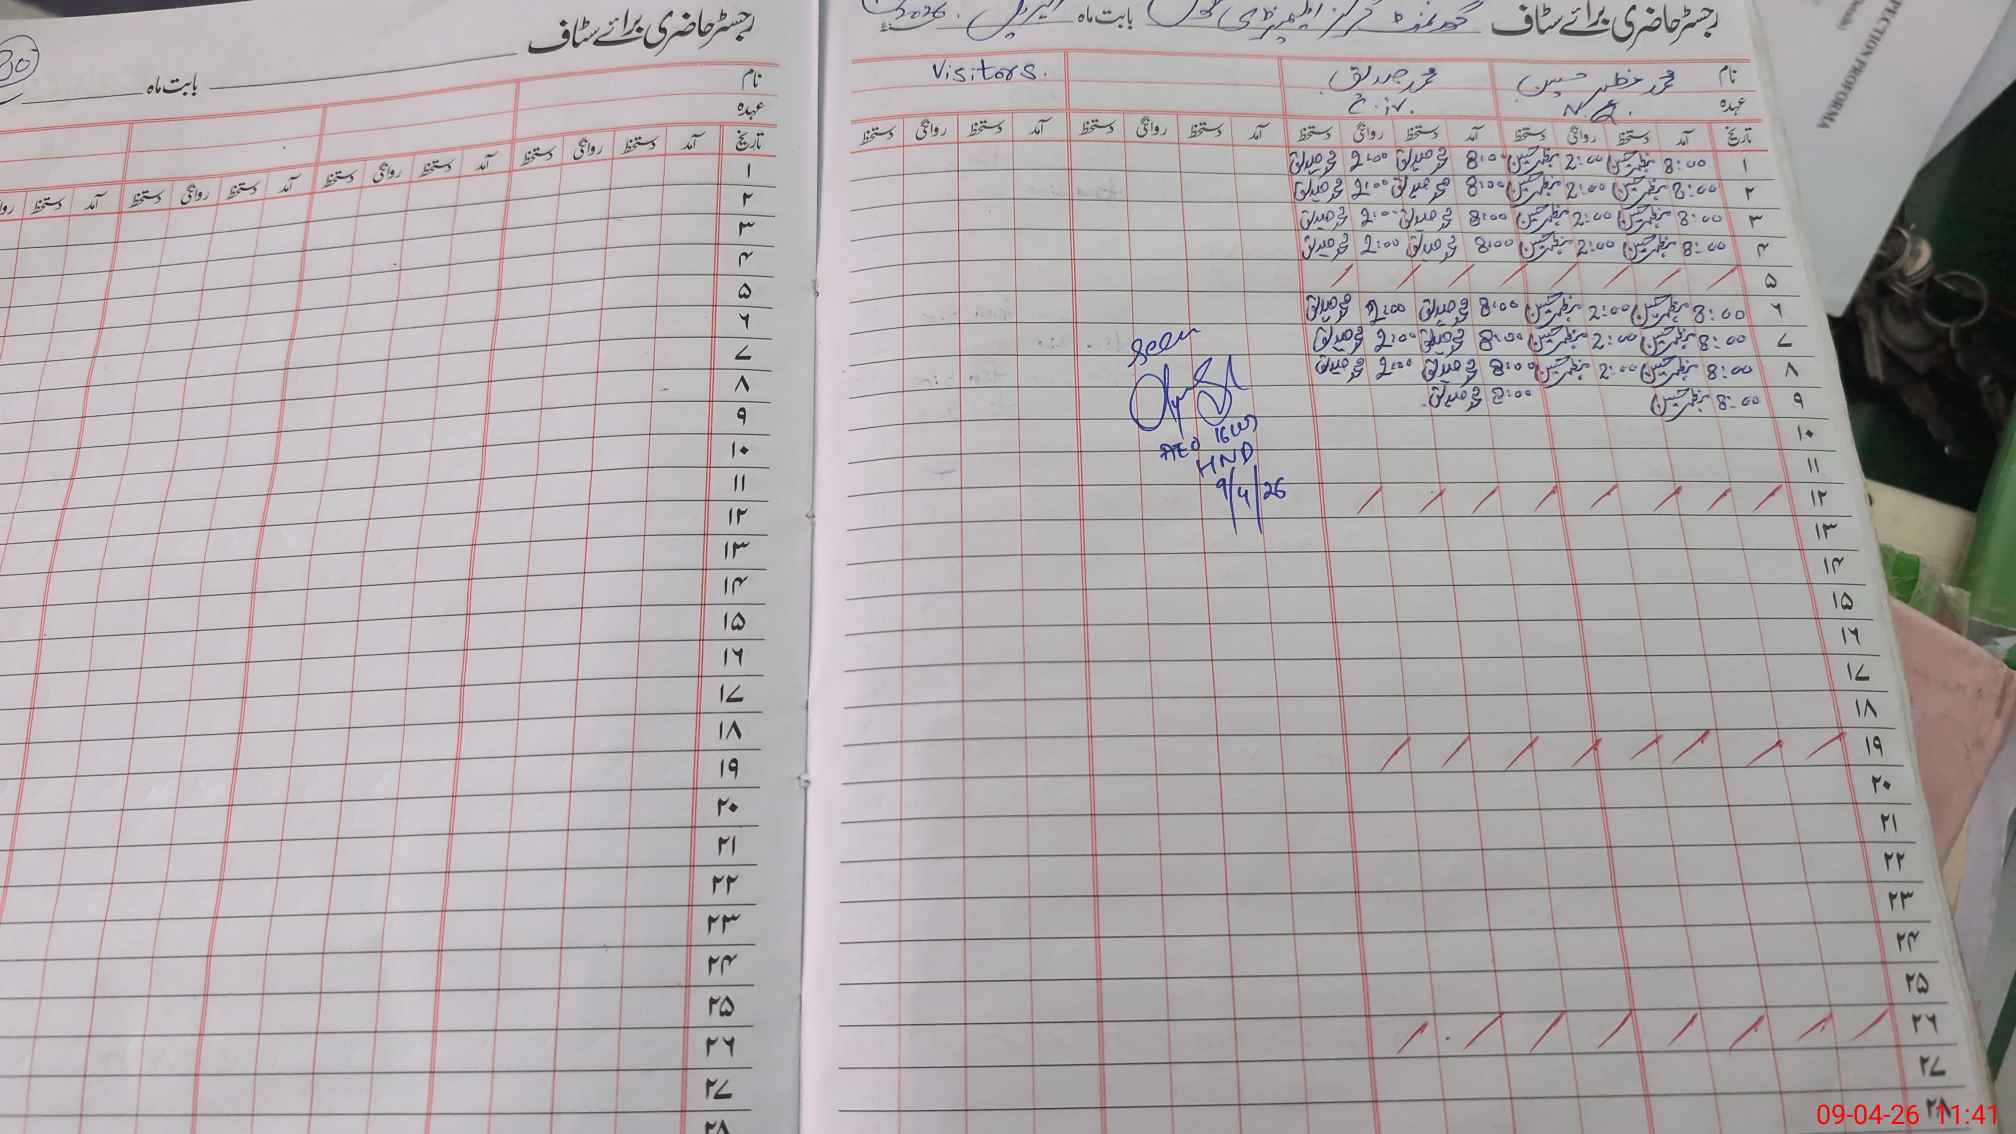 رجسٹر حاضری برائے سٹاف
بابت ماہ
نام
عہدہ
تاریخ آمد دستخط روانگی دستخط آمد دستخط روانگی دستخط آمد دستخط روانگی دستخط آمد دستخط
۱
۲
۳
۴
۵
۶
۷
۸
۹
۱۰
۱۱
۱۲
۱۳
۱۴
۱۵
۱۶
۱۷
۱۸
۱۹
۲۰
۲۱
۲۲
۲۳
۲۴
۲۵
۲۶
۲۷
۲۸
رجسٹر حاضری برائے سٹاف گورنمنٹ گرلز ایلیمنٹری سکول بابت ماہ اپریل 2026
نام محمد مظہر حسین محمد صدیق Visitors.
عہدہ N.Q.
تاریخ آمد دستخط روانگی دستخط آمد دستخط روانگی دستخط آمد دستخط روانگی دستخط آمد دستخط روانگی دستخط
۱ 8:00 مظہر حسین 2:00 مظہر حسین 8:00 محمد صدیق 2:00 محمد صدیق
۲ 8:00 مظہر حسین 2:00 مظہر حسین 8:00 محمد صدیق 2:00 محمد صدیق
۳ 8:00 مظہر حسین 2:00 مظہر حسین 8:00 محمد صدیق 2:00 محمد صدیق
۴ 8:00 مظہر حسین 2:00 مظہر حسین 8:00 محمد صدیق 2:00 محمد صدیق
۵ / / / / / / / /
۶ 8:00 مظہر حسین 2:00 مظہر حسین 8:00 محمد صدیق 2:00 محمد صدیق
۷ 8:00 مظہر حسین 2:00 مظہر حسین 8:00 محمد صدیق 2:00 محمد صدیق
۸ 8:00 مظہر حسین 2:00 مظہر حسین 8:00 محمد صدیق 2:00 محمد صدیق
۹ 8:00 مظہر حسین 8:00 محمد صدیق
seen
AEO
HND
9/4/26
۱۰
۱۱
۱۲ / / / / / / / /
۱۳
۱۴
۱۵
۱۶
۱۷
۱۸
۱۹ / / / / / / / /
۲۰
۲۱
۲۲
۲۳
۲۴
۲۵
۲۶ / / / / / / / /
۲۷
۲۸
PECTION PROFORMA
09-04-26 11:41